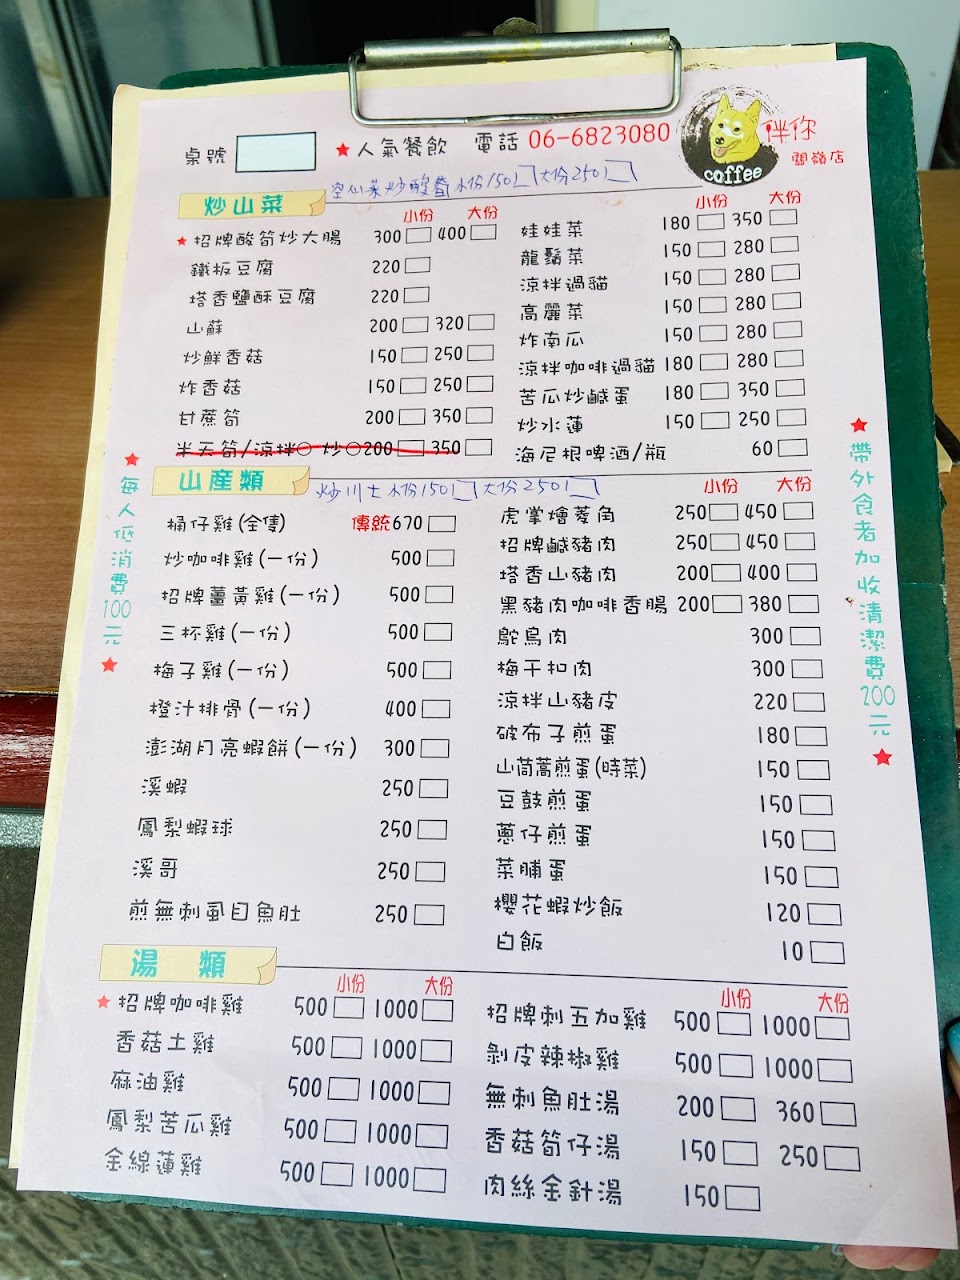 桌號 ★人氣餐飲 電話 06-6823080
coffee 伴你
關嶺店
炒山菜
空心菜炒酸 小份150 大份250
小份 大份
★招牌酸筍炒大腸 300 400
鐵板豆腐 220
塔香鹽酥豆腐 220
山蘇 200 320
炒鮮香菇 150 250
炸香菇 150 250
甘蔗筍 200 350
半天筍/涼拌○ 炒○200 350
小份 大份
娃娃菜 180 350
龍鬚菜 150 280
涼拌過貓 150 280
高麗菜 150 280
炸南瓜 150 280
涼拌咖啡過貓 180 280
苦瓜炒鹹蛋 180 350
炒水蓮 150 250
海尼根啤酒/瓶 60
★每人低消費100元★
★帶外食者加收清潔費200元★
山產類
炒川七 小份150 大份250
桶仔雞(全隻) 傳統670
炒咖啡雞(一份) 500
招牌薑黃雞(一份) 500
三杯雞(一份) 500
梅子雞(一份) 500
橙汁排骨(一份) 400
澎湖月亮蝦餅(一份) 300
溪蝦 250
鳳梨蝦球 250
溪哥 250
煎無刺虱目魚肚 250
小份 大份
虎掌燴菱角 250 450
招牌鹹豬肉 250 450
塔香山豬肉 200 400
黑豬肉咖啡香腸 200 380
鴕鳥肉 300
梅干扣肉 300
涼拌山豬皮 220
破布子煎蛋 180
山茼蒿煎蛋(時菜) 150
豆鼓煎蛋 150
蔥仔煎蛋 150
菜脯蛋 150
櫻花蝦炒飯 120
白飯 10
湯 類
小份 大份
★招牌咖啡雞 500 1000
香菇土雞 500 1000
麻油雞 500 1000
鳳梨苦瓜雞 500 1000
金線蓮雞 500 1000
小份 大份
招牌刺五加雞 500 1000
剝皮辣椒雞 500 1000
無刺魚肚湯 200 360
香菇筍仔湯 150 250
肉絲金針湯 150